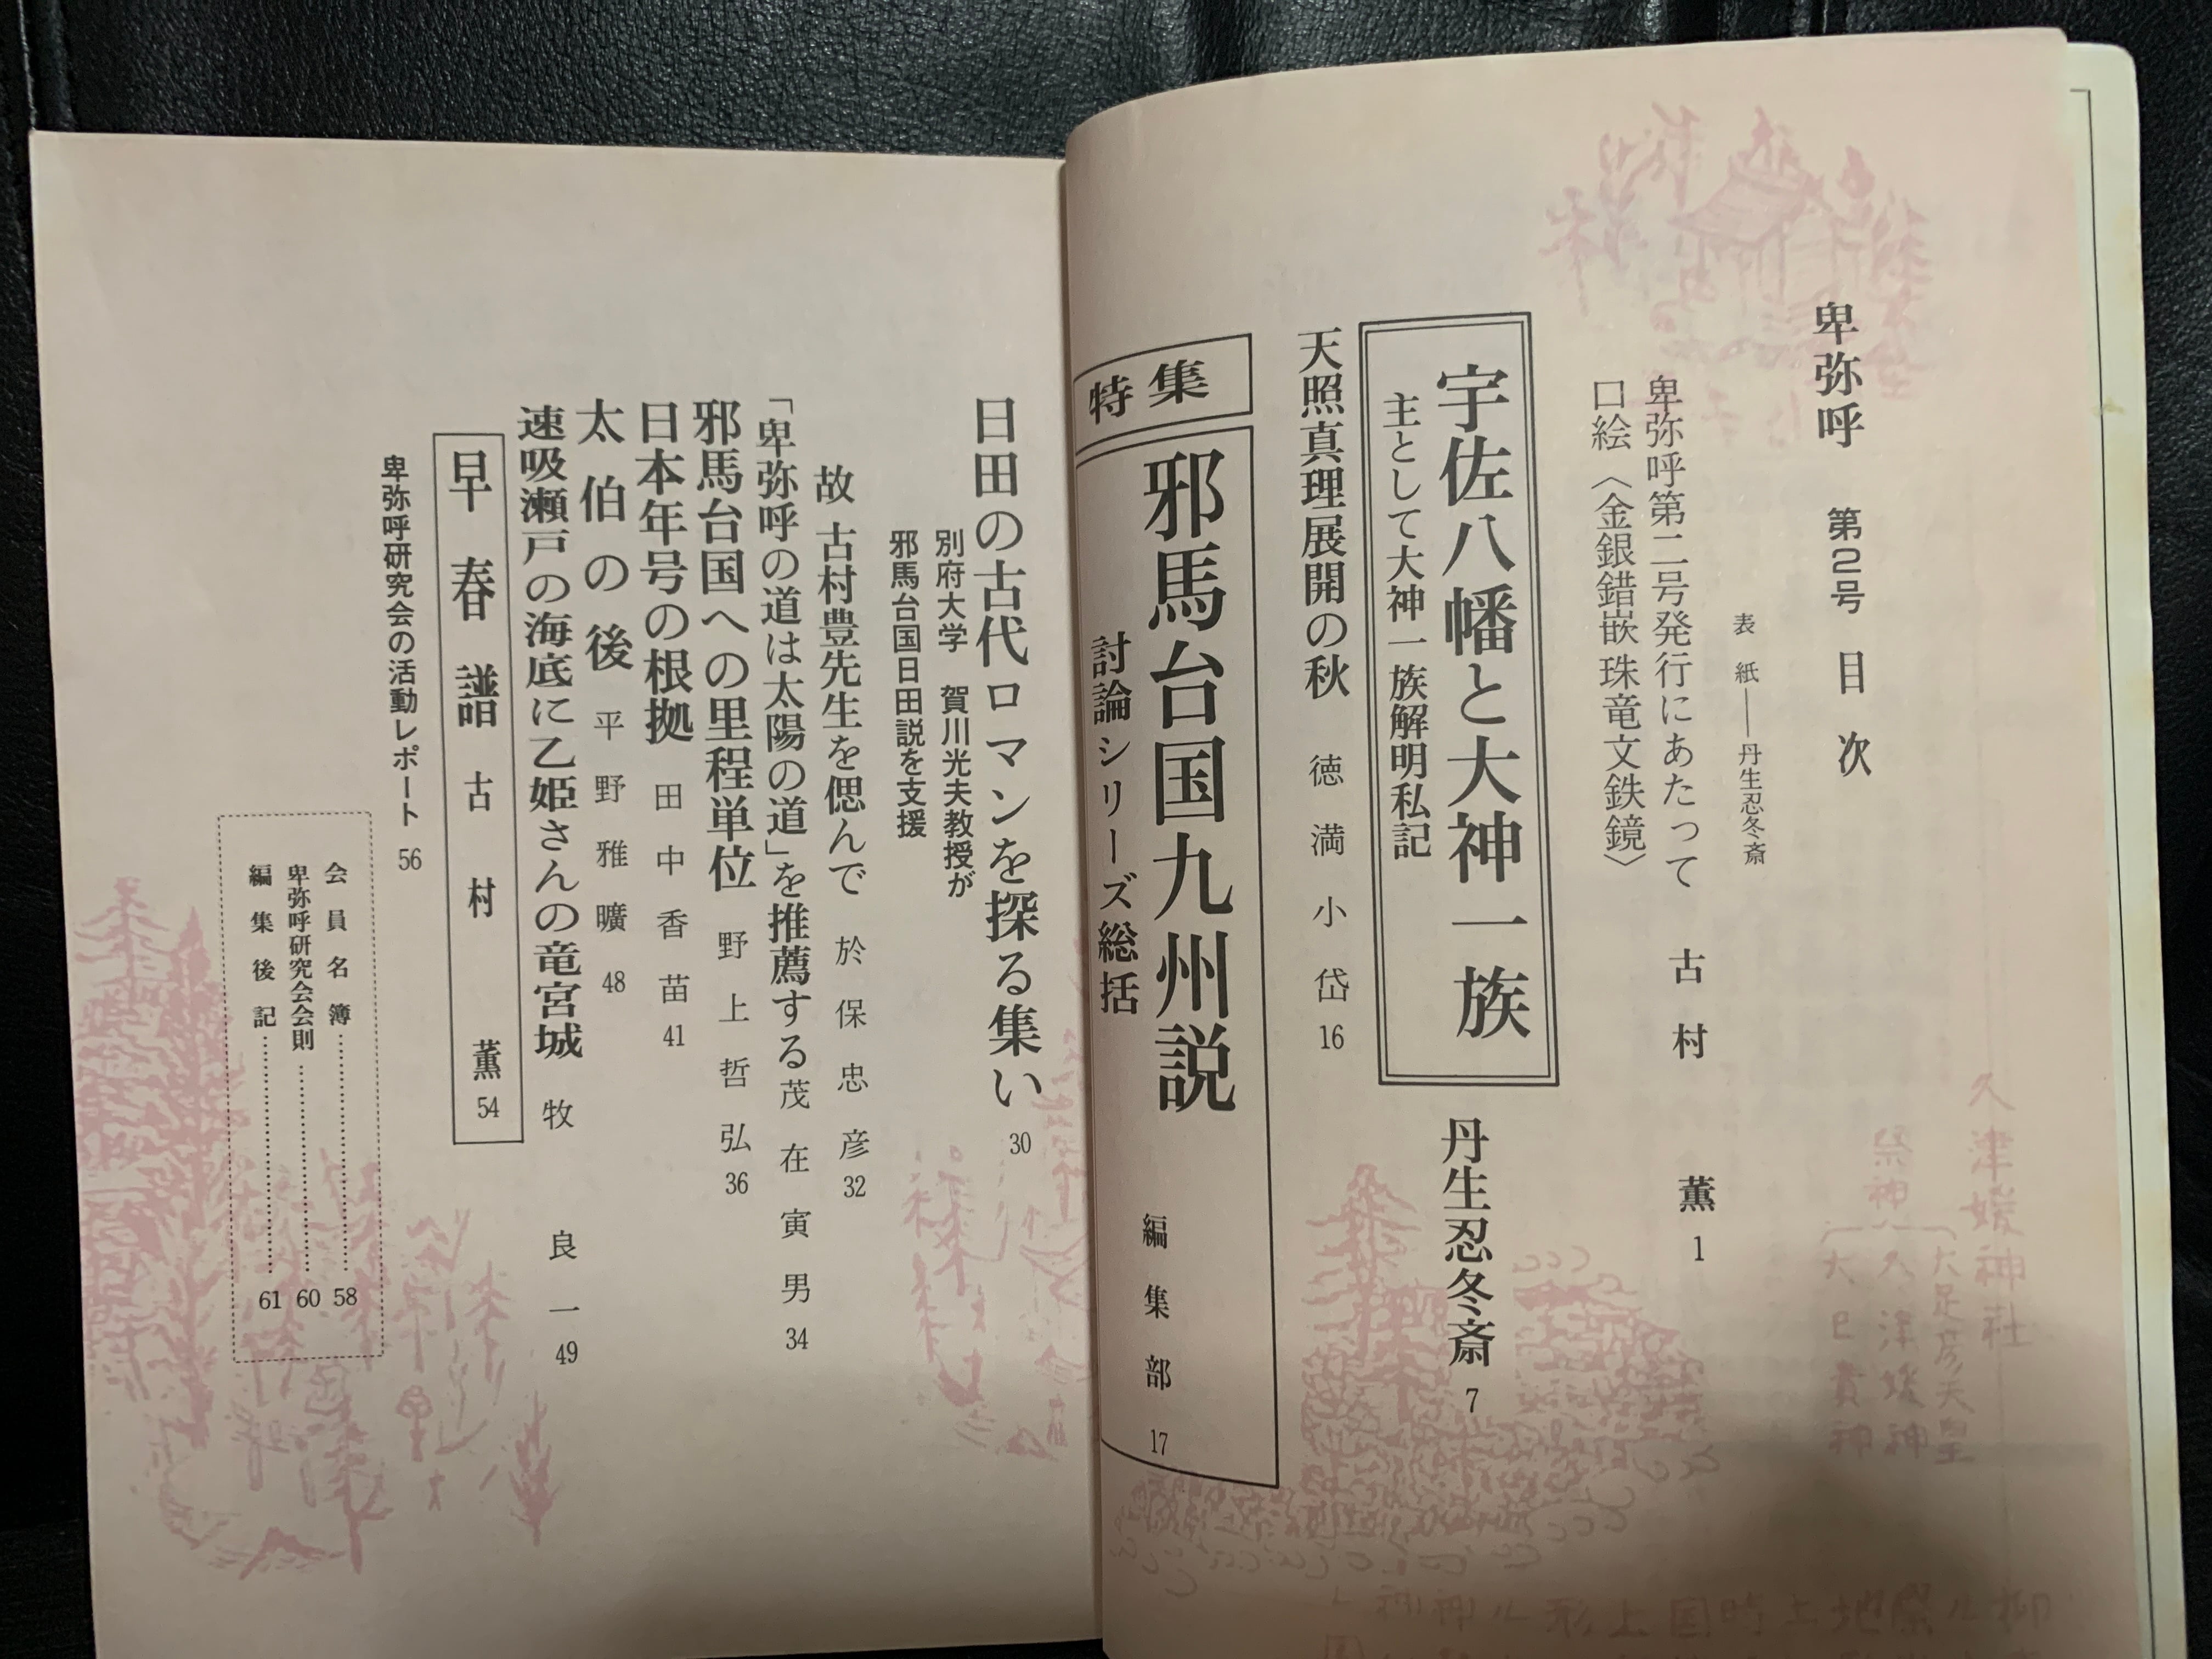 卑弥呼 第2号 目次
表紙――丹生忍冬斎
卑弥呼第二号発行にあたって 古村 薫 1
口絵〈金銀錯嵌珠竜文鉄鏡〉
宇佐八幡と大神一族 丹生忍冬斎 7
主として大神一族解明私記
天照真理展開の秋 徳満小岱 16
特集
邪馬台国九州説 編集部 17
討論シリーズ総括
日田の古代ロマンを探る集い 30
別府大学 賀川光夫教授が
邪馬台国日田説を支援
故 古村豊先生を偲んで 於保忠彦 32
「卑弥呼の道は太陽の道」を推薦する 茂在寅男 34
邪馬台国への里程単位 野上哲弘 36
日本年号の根拠 田中香苗 41
太伯の後 平野雅曠 48
速吸瀬戸の海底に乙姫さんの竜宮城 牧 良一 49
早春譜 古村 薫 54
卑弥呼研究会の活動レポート 56
会員名簿………58
卑弥呼研究会会則………60
編集後記………61
久津媛神社
祭神
大足彦天皇
久津媛神
大己貴神